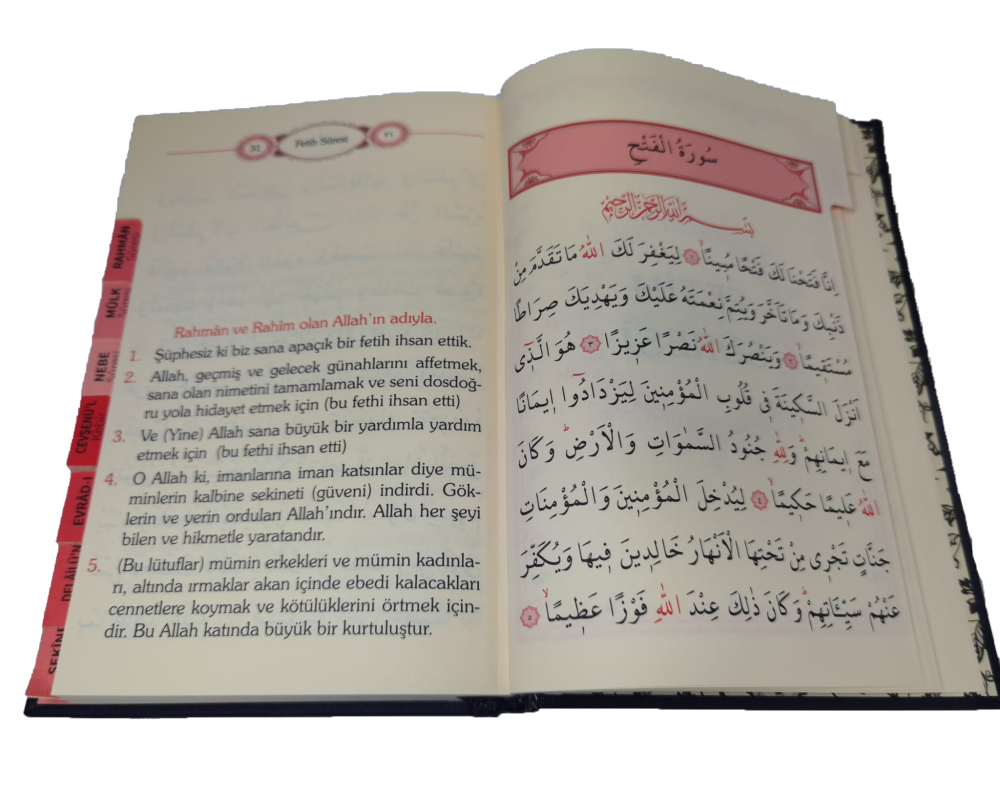 31 Fetih Sûresi ٣١
Rahmân ve Rahîm olan Allah'ın adıyla.
1. Şüphesiz ki biz sana apaçık bir fetih ihsan ettik.
2. Allah, geçmiş ve gelecek günahlarını affetmek,
sana olan nimetini tamamlamak ve seni dosdoğ-
ru yola hidayet etmek için (bu fethi ihsan etti)
3. Ve (Yine) Allah sana büyük bir yardımla yardım
etmek için (bu fethi ihsan etti)
4. O Allah ki, imanlarına iman katsınlar diye mü-
minlerin kalbine sekineti (güveni) indirdi. Gök-
lerin ve yerin orduları Allah'ındır. Allah her şeyi
bilen ve hikmetle yaratandır.
5. (Bu lütuflar) mümin erkekleri ve mümin kadınla-
rı, altında ırmaklar akan içinde ebedi kalacakları
cennetlere koymak ve kötülüklerini örtmek için-
dir. Bu Allah katında büyük bir kurtuluştur.
RAHMÂN
MÜLK
NEBE
CEVŞENÜ'L
EVRÂD-I
DELÂİLÜ'N
SEKÎNE
سُورَةُ الْفَتْحِ
بِسْمِ اللهِ الرَّحْمٰنِ الرَّحِيمِ
اِنَّا فَتَحْنَا لَكَ فَتْحًا مُبِينًاۙ ١ لِيَغْفِرَ لَكَ اللهُ مَا تَقَدَّمَ مِنْ
ذَنْبِكَ وَمَا تَاَخَّرَ وَيُتِمَّ نِعْمَتَهُ عَلَيْكَ وَيَهْدِيَكَ صِرَاطًا
مُسْتَقِيمًاۙ ٢ وَيَنْصُرَكَ اللهُ نَصْرًا عَزِيزًا ٣ هُوَ الَّذِٓى
اَنْزَلَ السَّكِينَةَ فِى قُلُوبِ الْمُؤْمِنِينَ لِيَزْدَادُٓوا اِيمَانًا
مَعَ اِيمَانِهِمْۜ وَلِلّٰهِ جُنُودُ السَّمٰوَاتِ وَالْاَرْضِۜ وَكَانَ
اللهُ عَلِيمًا حَكِيمًاۙ ٤ لِيُدْخِلَ الْمُؤْمِنِينَ وَالْمُؤْمِنَاتِ
جَنَّاتٍ تَجْرِى مِنْ تَحْتِهَا الْاَنْهَارُ خَالِدِينَ فِيهَا وَيُكَفِّرَ
عَنْهُمْ سَيِّـَٔاتِهِمْۜ وَكَانَ ذٰلِكَ عِنْدَ اللهِ فَوْزًا عَظِيمًاۙ ٥